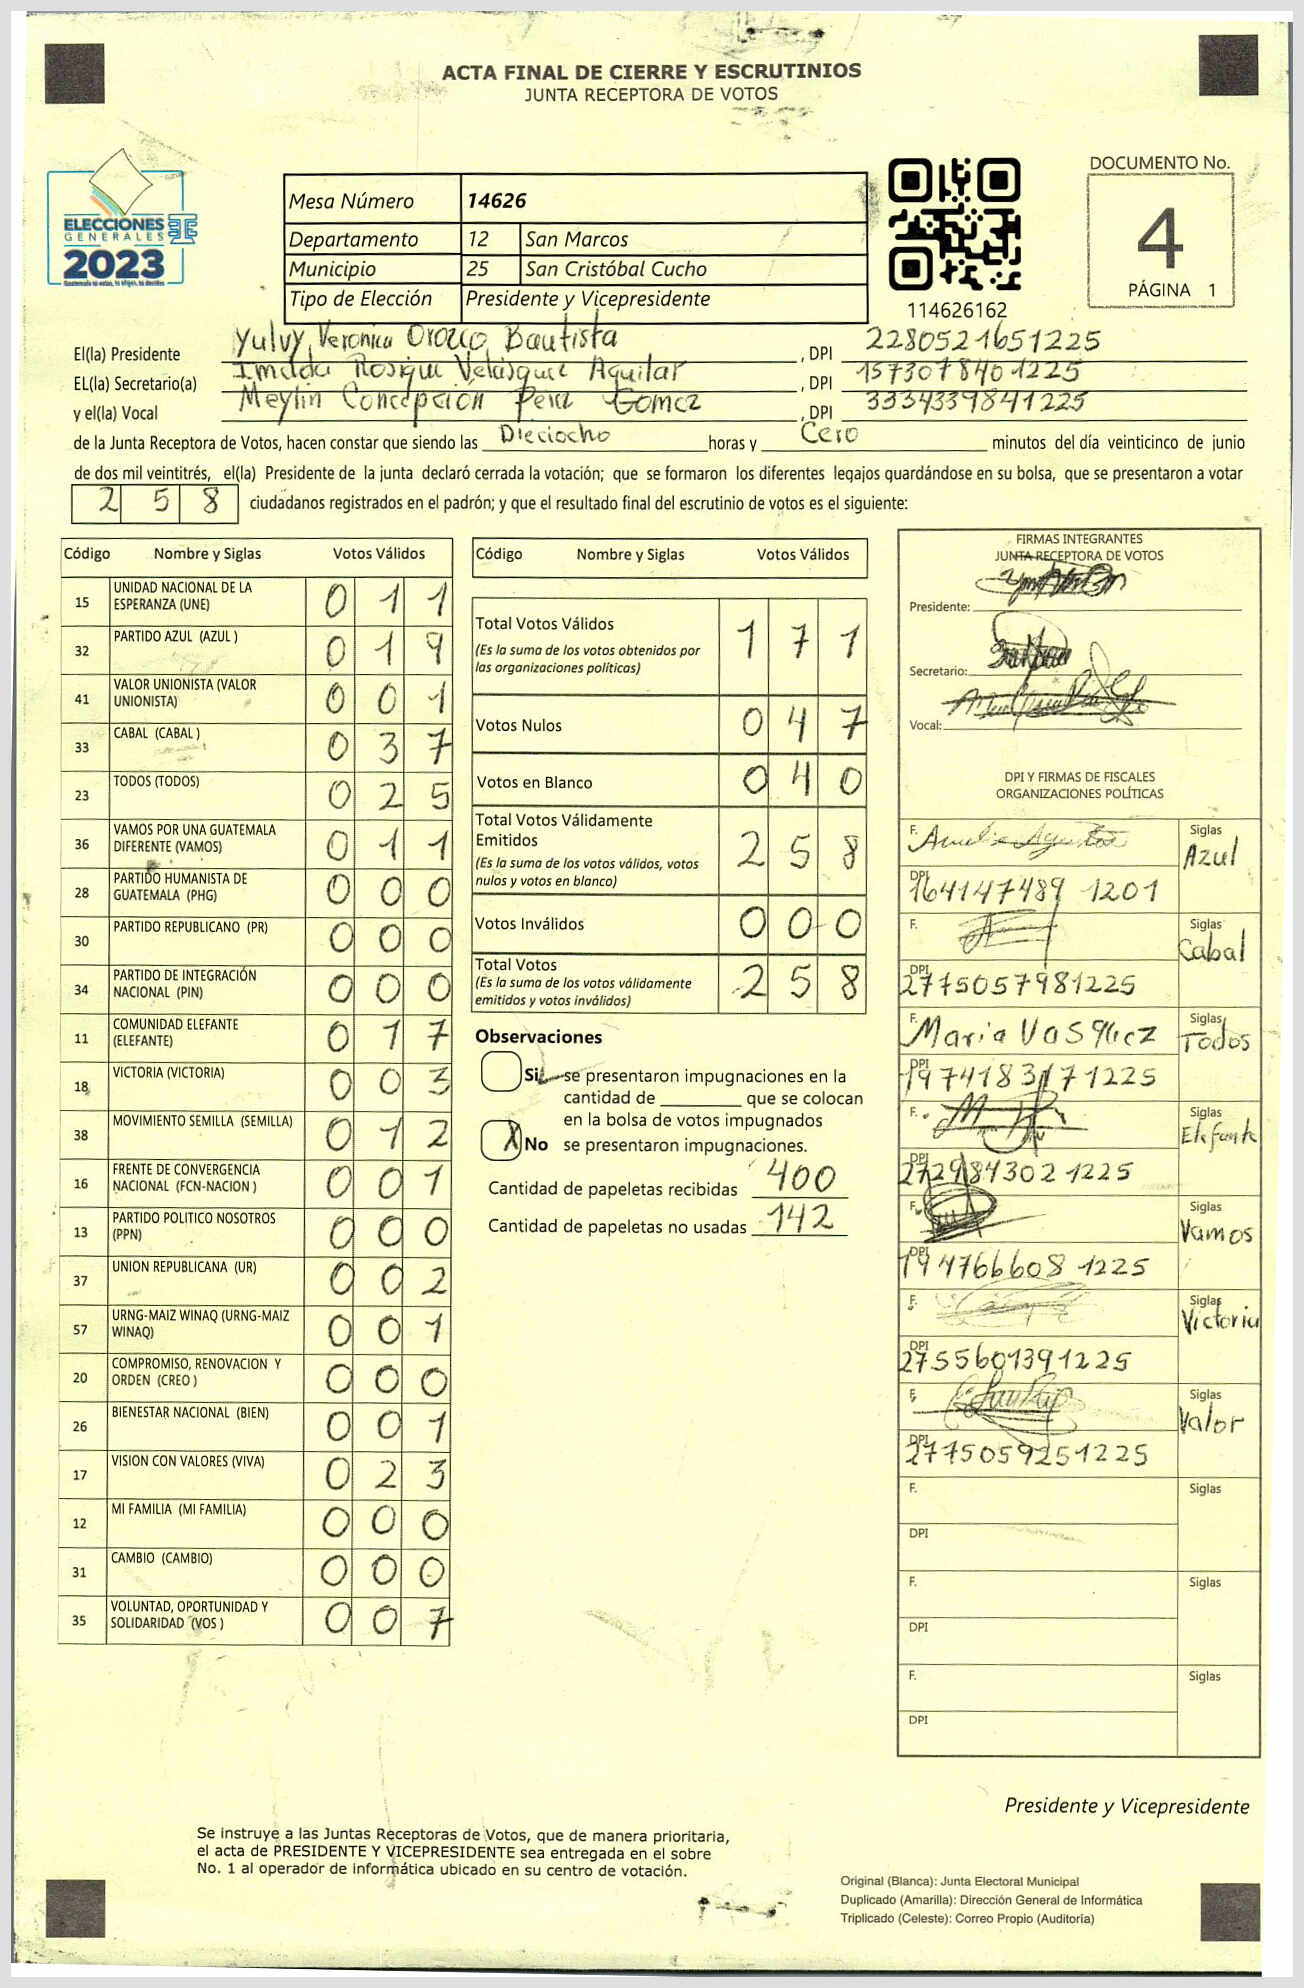 ACTA FINAL DE CIERRE Y ESCRUTINIOS
JUNTA RECEPTORA DE VOTOS
ELECCIONES
GENERALES
2023
Mesa Número 14626
Departamento 12 San Marcos
Municipio 25 San Cristóbal Cucho
Tipo de Elección Presidente y Vicepresidente
114626162
DOCUMENTO No.
4
PÁGINA 1
El(la) Presidente Yulvy Veronica Orozco Bautista , DPI 2280521651225
EL(la) Secretario(a) Imelda Velásquez Aguilar , DPI 1573078401225
y el(la) Vocal Meylin Concepción Perez Gomez , DPI 3334339841225
de la Junta Receptora de Votos, hacen constar que siendo las Dieciocho horas y Cero minutos del día veinticinco de junio
de dos mil veintitrés, el(la) Presidente de la junta declaró cerrada la votación; que se formaron los diferentes legajos guardándose en su bolsa, que se presentaron a votar
258 ciudadanos registrados en el padrón; y que el resultado final del escrutinio de votos es el siguiente:
Código Nombre y Siglas Votos Válidos
15 UNIDAD NACIONAL DE LA ESPERANZA (UNE) 011
32 PARTIDO AZUL (AZUL ) 019
41 VALOR UNIONISTA (VALOR UNIONISTA) 001
33 CABAL (CABAL ) 037
23 TODOS (TODOS) 025
36 VAMOS POR UNA GUATEMALA DIFERENTE (VAMOS) 011
28 PARTIDO HUMANISTA DE GUATEMALA (PHG) 000
30 PARTIDO REPUBLICANO (PR) 000
34 PARTIDO DE INTEGRACIÓN NACIONAL (PIN) 000
11 COMUNIDAD ELEFANTE (ELEFANTE) 017
18 VICTORIA (VICTORIA) 003
38 MOVIMIENTO SEMILLA (SEMILLA) 012
16 FRENTE DE CONVERGENCIA NACIONAL (FCN-NACION ) 001
13 PARTIDO POLITICO NOSOTROS (PPN) 000
37 UNION REPUBLICANA (UR) 002
57 URNG-MAIZ WINAQ (URNG-MAIZ WINAQ) 001
20 COMPROMISO, RENOVACION Y ORDEN (CREO ) 000
26 BIENESTAR NACIONAL (BIEN) 001
17 VISION CON VALORES (VIVA) 023
12 MI FAMILIA (MI FAMILIA) 000
31 CAMBIO (CAMBIO) 000
35 VOLUNTAD, OPORTUNIDAD Y SOLIDARIDAD (VOS ) 007
Código Nombre y Siglas Votos Válidos
Total Votos Válidos 171
(Es la suma de los votos obtenidos por
las organizaciones políticas)
Votos Nulos 047
Votos en Blanco 040
Total Votos Válidamente
Emitidos 258
(Es la suma de los votos válidos, votos
nulos y votos en blanco)
Votos Inválidos 000
Total Votos 258
(Es la suma de los votos válidamente
emitidos y votos inválidos)
Observaciones
Si se presentaron impugnaciones en la
cantidad de ________ que se colocan
en la bolsa de votos impugnados
X No se presentaron impugnaciones.
Cantidad de papeletas recibidas 400
Cantidad de papeletas no usadas 142
FIRMAS INTEGRANTES
JUNTA RECEPTORA DE VOTOS
Presidente:
Secretario:
Vocal:
DPI Y FIRMAS DE FISCALES
ORGANIZACIONES POLÍTICAS
F. Siglas Azul
DPI 164147489 1201
F. Siglas Cabal
DPI 2775057981225
F. Maria Vasquez Siglas Todos
DPI 1974183171225
F. Siglas Elefante
DPI 272984302 1225
F. Siglas Vamos
DPI 194766608 1225
F. Siglas Victoria
DPI 2755601391225
F. Siglas Valor
DPI 2775059251225
F. Siglas
DPI
F. Siglas
DPI
F. Siglas
DPI
Presidente y Vicepresidente
Se instruye a las Juntas Receptoras de Votos, que de manera prioritaria,
el acta de PRESIDENTE Y VICEPRESIDENTE sea entregada en el sobre
No. 1 al operador de informática ubicado en su centro de votación.
Original (Blanca): Junta Electoral Municipal
Duplicado (Amarilla): Dirección General de Informática
Triplicado (Celeste): Correo Propio (Auditoría)